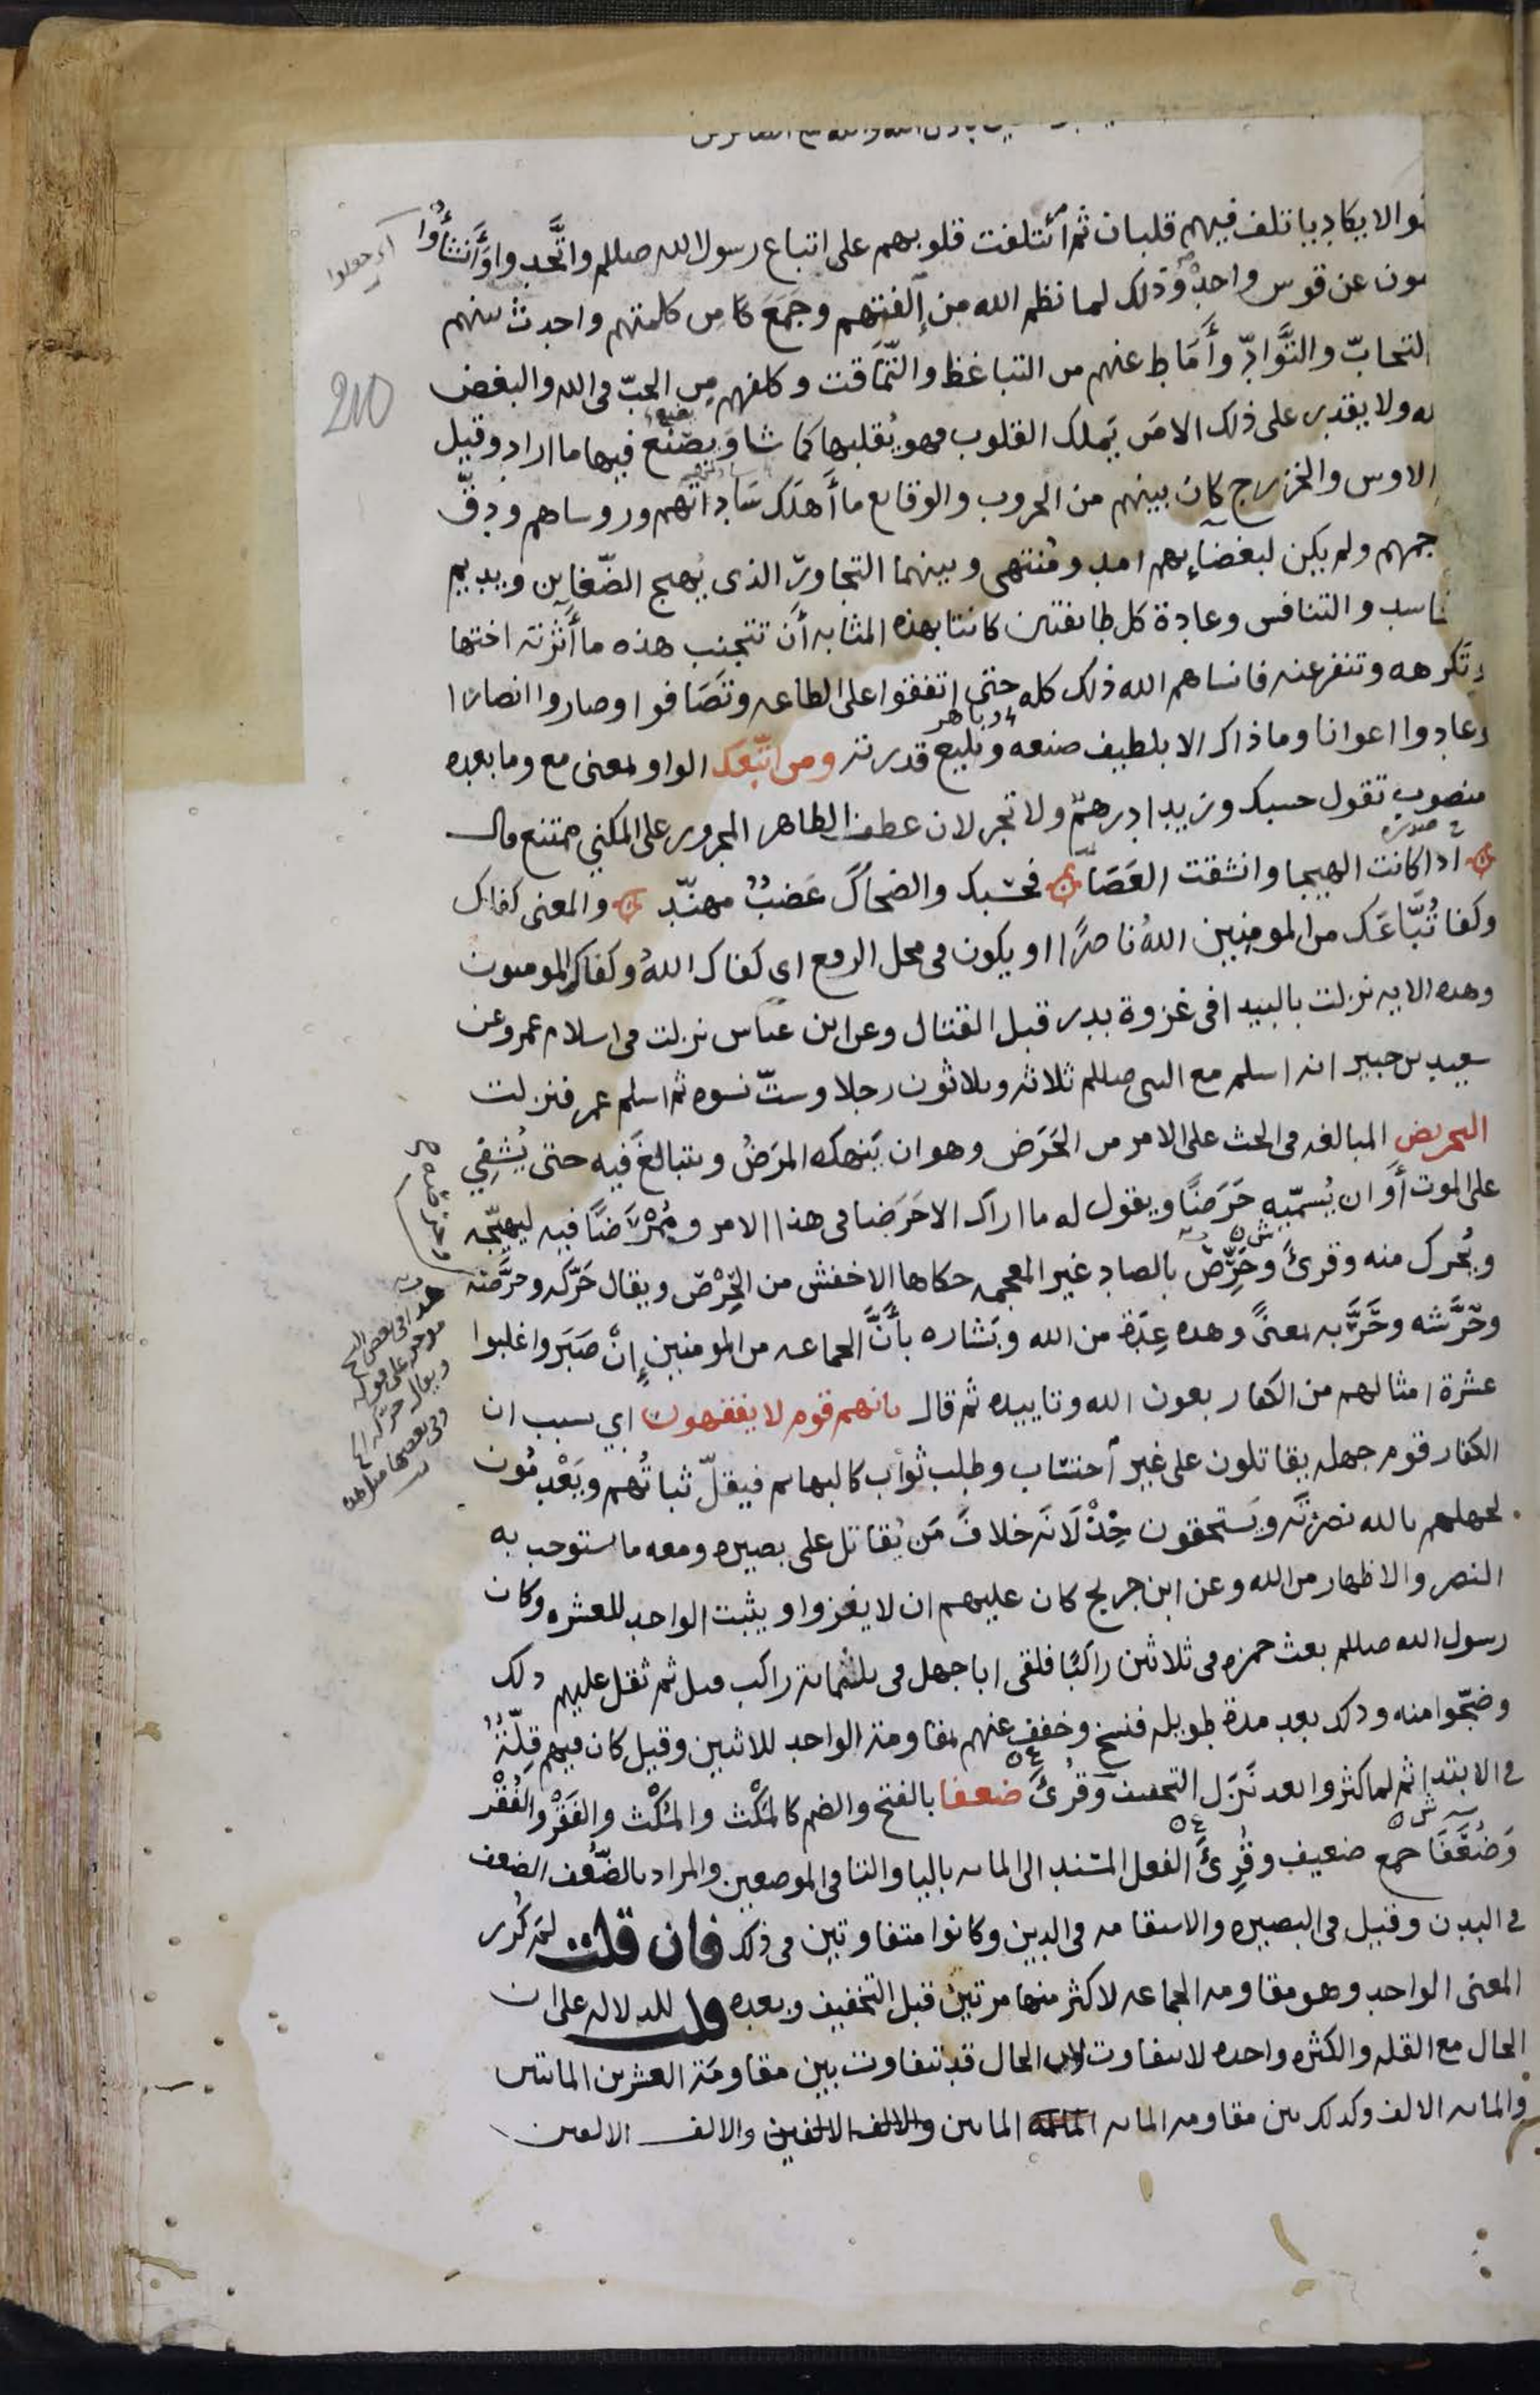 نوا لا يكاد ياتلف فيهم قلبان ثم ائتلفت قلوبهم على اتباع رسول الله صللم واتَّحدوا وَأَنْشَأُوا
مون عن قوس واحدٍ وذلك لما نظم الله من إلفتهم وجَمَعَ من كلمتهم واحدث بينهم
التحابّ والتَّوادّ وأَمَاط عنهم من التباغظ والتَّمَاقت وكلفهم مِن الحبّ في الله والبغض
له ولا يقدر على ذلك الا مَن يَملك القلوب فهو يُقلبها كما شا وَيصْنَعُ فيها ما اراد وقيل
الاوس والخزرج كان بينهم من الحروب والوقايع ما أَهلك سَاداتهم وروساهم ودقّ
جمهم ولم يكن لبغضايهم امد ومُنتهى وبينهما التجاورّ الذى يُهيج الضّغاين ويديم
اسد والتنافس وعادة كل طايفتين كانتا بهذه المثابه أَن تتجنب هذه ما أَثرته اختها
وتَكرهه وتنفر عنه فانساهم الله ذلك كله حتى اتفقوا على الطاعه وتَصَافوا وصاروا انصارًا
وعادوا اعوانا وما ذاك الا بلطيف صنعه وَبليغ قدرته ومن اتّبعك الواو بمعنى مع وما بعده
باهر
منصوب تقول حسبك وزيدا درهمٌ ولا تجر لان عطف الظاهر المجرور على المكني ممتنع قال
اذا كانت الهيجا وانشقت العَصَا فحسبك والضحاكَ عَضبٌ مهنّد والمعنى كفاك
وكفا تُبَّاعَك من المومنين اللهُ ناصرًا او يكون في محل الرفع اى كفاك اللهُ وكفاك المومنون
وهذه الايه نزلت بالبيدا في غزوة بدر قبل القتال وعن ابن عباس نزلت في اسلام عمر وعن
سعيد بن جبير انه اسلم مع النبي صللم ثلاثه وثلاثون رجلا وستّ نسوه ثم اسلم عمر فنزلت
التحريض المبالغه في الحث على الامر من الحَرَض وهو ان يَنهكه المَرَضُ ويتبالغَ فيه حتى يُشفِي
على الموت أو ان يُسمّيه حَرَضًا ويقول له ما اراك الا حَرَضا في هذا الامر ومُمْرَضًا فيه ليهيّجه
ويُحرك منه وقرئَ وحَرِّصْ بالصاد غير المعجمه حكاها الاخفش من الحِرْص ويقال حَرّكه وحرَّضه
وحَرَّشه وحَرَّبه بمعنىً وهذه عِدَة من الله وبَشاره بأَنَّ الجماعه من المومنين إِنْ صَبَروا غلبوا
عشرة امثالهم من الكفار بعون الله وتاييده ثم قال بانهم قوم لا يفقهون اي بسبب ان
الكفار قوم جهله يقاتلون على غير احتساب وطلب ثواب كالبهايم فيقلّ ثباتُهم ويَعْدمُون
لجهلهم بالله نصرتَه ويَستحقون خِذْلَانَه خلافَ مَن يُقاتل على بصيره ومعه ما استوجب به
النصر والاظهار من الله وعن ابن جريج كان عليهم ان لا يفروا ويثبت الواحد للعشره وكان
رسول الله صللم بعث حمزه في ثلاثين راكبًا فلقى ابا جهل في ثلثماية راكب قيل ثم ثقل عليهم ذلك
وضجّوا منه وذلك بعد مدة طويله فنسخ وخفف عنهم بمقاومة الواحد للاثنين وقيل كان فيهم قِلّةٌ
في الابتدا ثم لما كثروا بعد نَزل التخفيف وَقُرئَ ضعفا بالفتح والضم كالمَكْث والمُكْث والفَقْر والفُقْر
وَضُعَفَا جمع ضعيف وقُرِئَ الفعل المسند الى المايه باليا والتا في الموضعين والمراد بالضّعف الضعف
في البدن وقيل في البصيره والاستقامه في الدين وكانوا متفاوتين في ذلك فان قلت لم كُرر
المعنى الواحد وهو مقاومه الجماعه لاكثر منها مرتين قبل التخفيف وبعده قلت للدلاله على ان
الحال مع القله والكثره واحده لا تتفاوت لان الحال قد تتفاوت بين مقاومَة العشرين الماتين
والمايه الالف وكذلك بين مقاومه المايه الماتين والالف الالفين والالف الالفين
اى جعلوا
210
هذا في بعض النسخ
موخر على قوله
ويقال حرّكه الخ
وفي بعضها مثل هذا